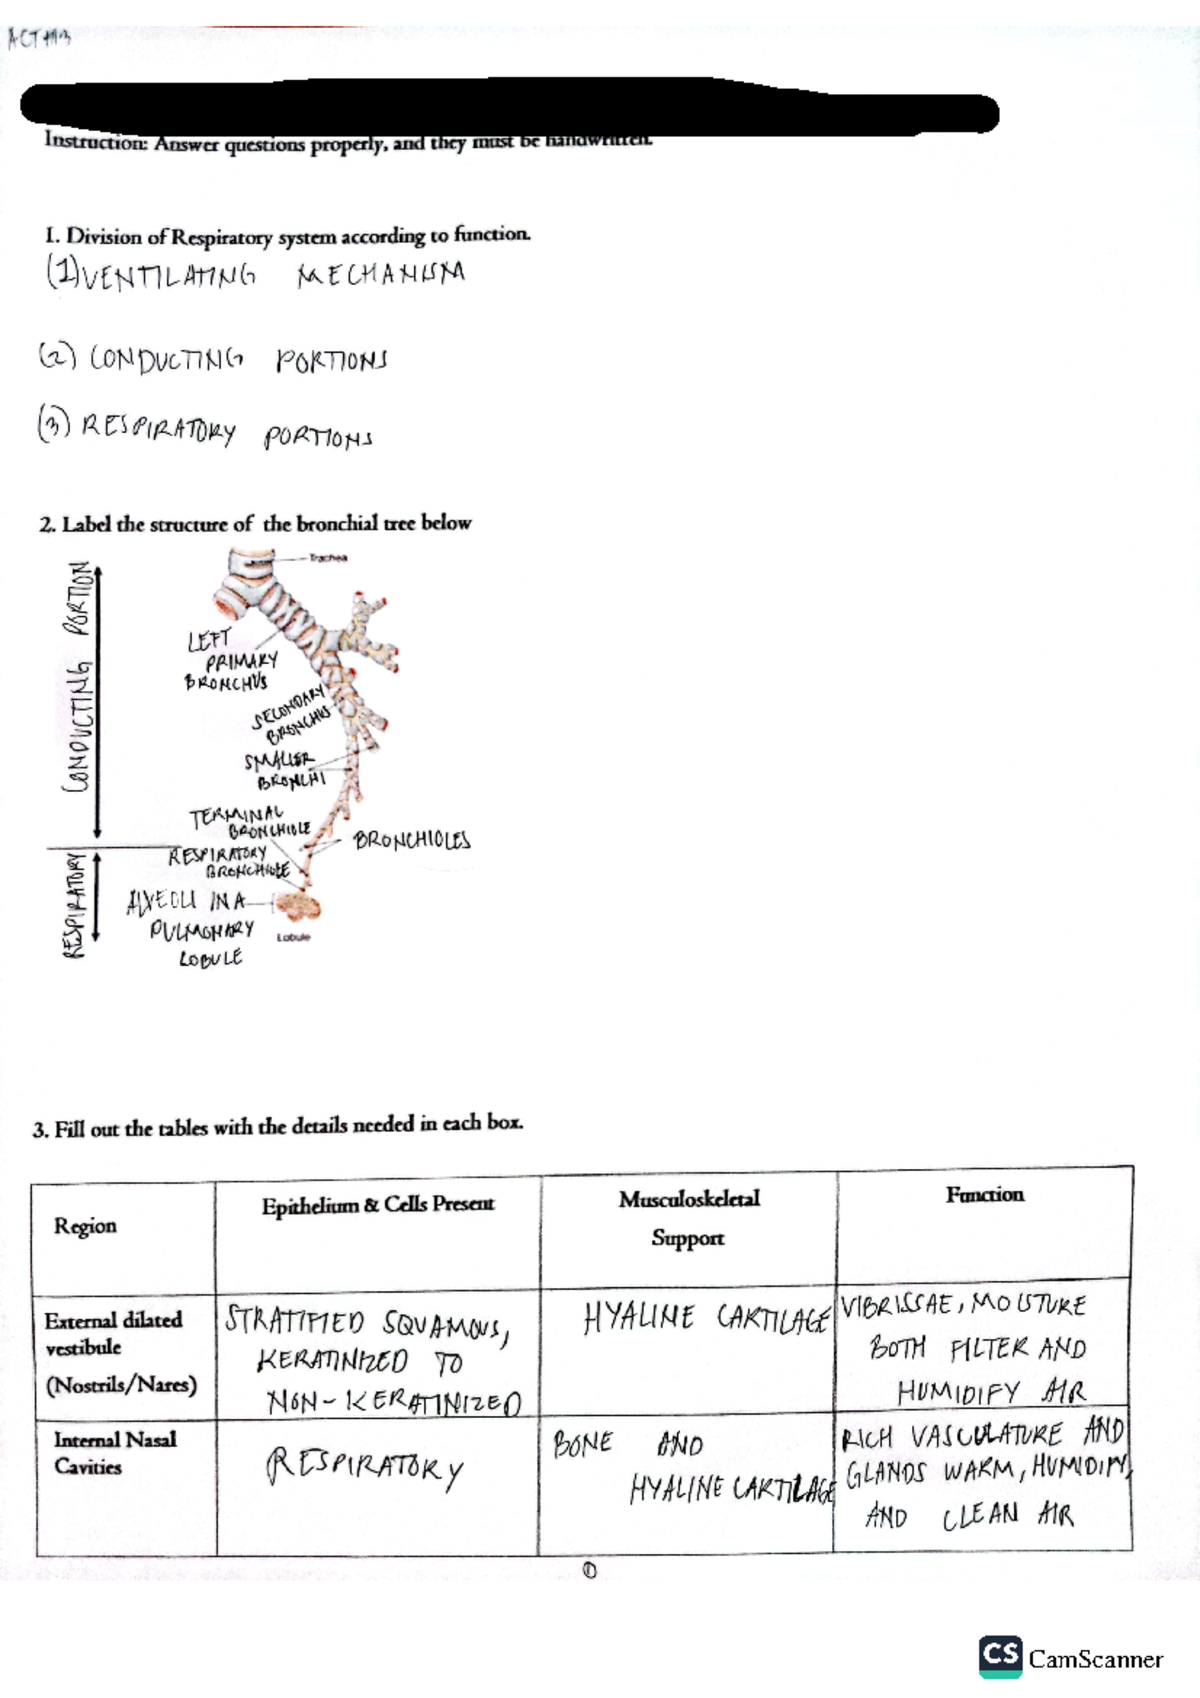 Instruction: Answer questions properly, and they must be handwritten.
1. Division of Respiratory system according to function.
(1) VENTILATING MECHANISM
(2) CONDUCTING PORTIONS
(3) RESPIRATORY PORTIONS
2. Label the structure of the bronchial tree below
Trachea
CONDUCTING PORTION
LEFT
PRIMARY
BRONCHUS
SECONDARY
BRONCHUS
SMALLER
BRONCHI
TERMINAL
BRONCHIOLE
BRONCHIOLES
RESPIRATORY
RESPIRATORY
BRONCHIOLE
ALVEOLI IN A
PULMONARY
LOBULE
Lobule
3. Fill out the tables with the details needed in each box.
Region
Epithelium & Cells Present
Musculoskeletal
Support
Function
External dilated
vestibule
(Nostrils/Nares)
STRATIFIED SQUAMOUS,
KERATINIZED TO
NON-KERATINIZED
HYALINE CARTILAGE
VIBRISSAE, MOISTURE
BOTH FILTER AND
HUMIDIFY AIR
Internal Nasal
Cavities
RESPIRATORY
BONE AND
HYALINE CARTILAGE
RICH VASCULATURE AND
GLANDS WARM, HUMIDIFY,
AND CLEAN AIR
1
CS CamScanner